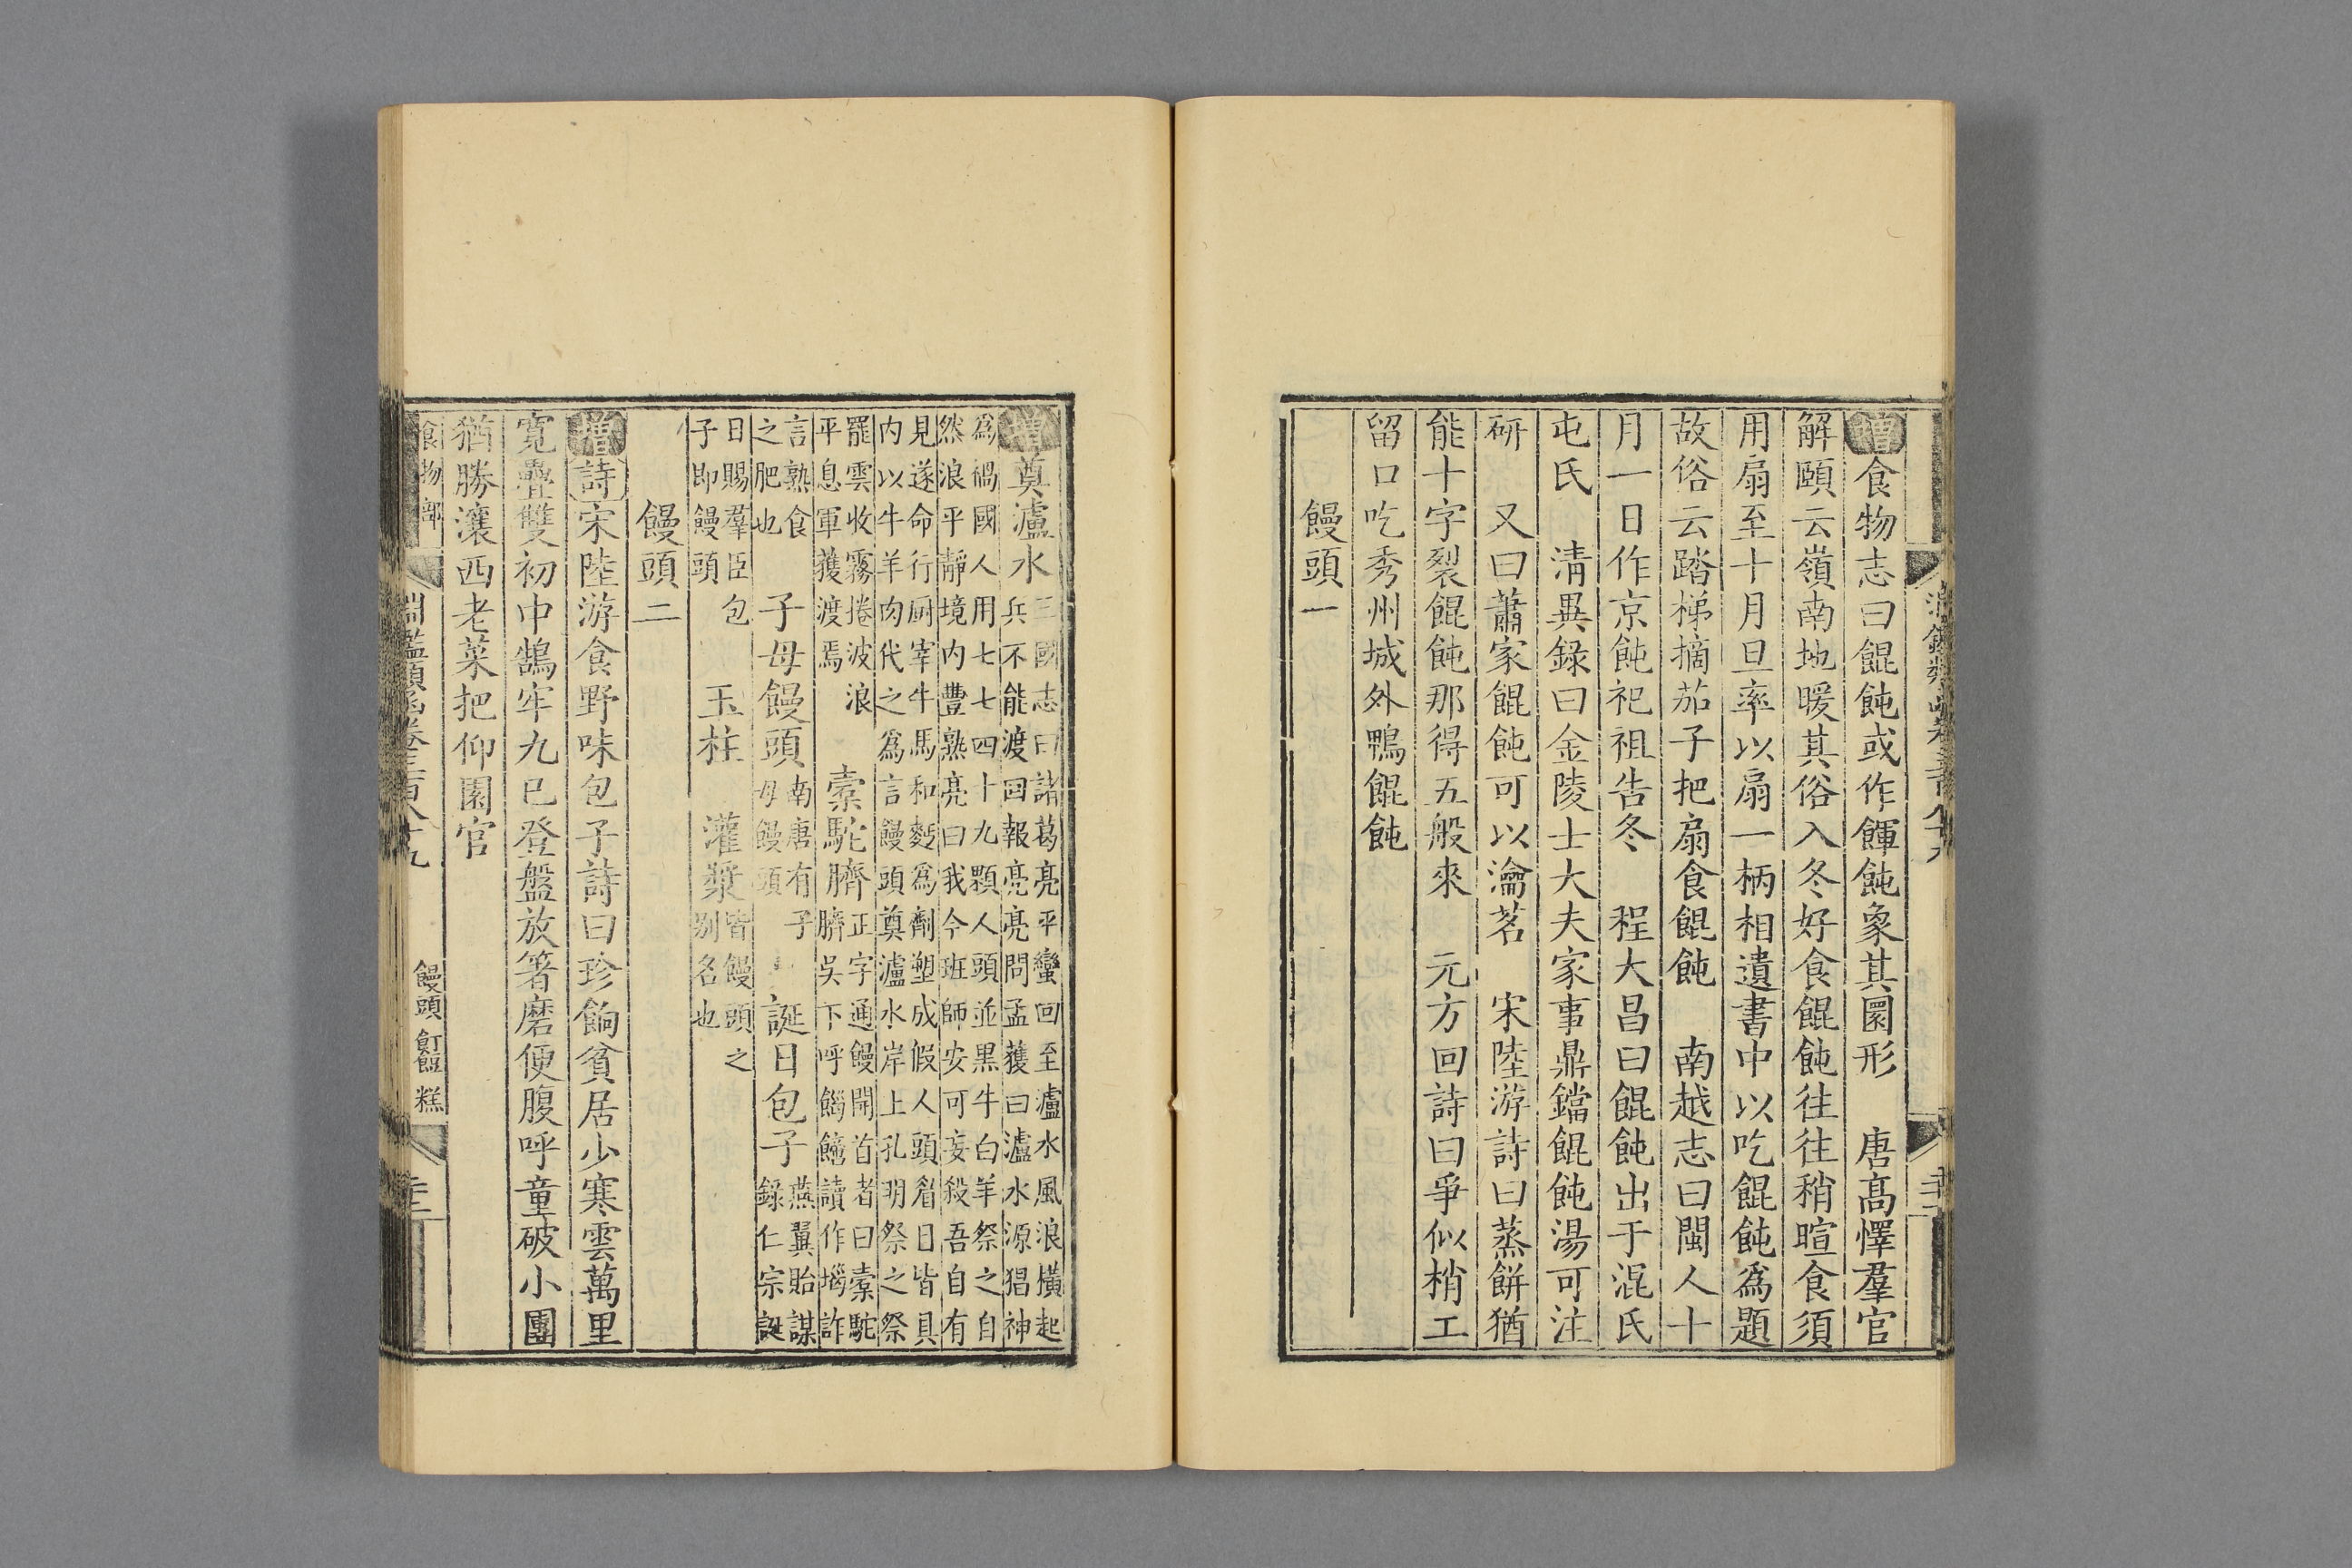 增食物志曰餛飩或作餫飩象其圜形　唐高懌羣官
解頤云嶺南地暖其俗入冬好食餛飩往往稍暄食須
用扇至十月旦率以扇一柄相遺書中以吃餛飩爲題
故俗云踏梯摘茄子把扇食餛飩　南越志曰閩人十
月一日作京飩祀祖告冬　程大昌曰餛飩出于混氏
屯氏　清異錄曰金陵士大夫家事鼎鐺餛飩湯可注
硏　又曰蕭家餛飩可以瀹茗　宋陸游詩曰蒸餅猶
能十字裂餛飩那得五般來　元方回詩曰爭似梢工
留口吃秀州城外鴨餛飩
饅頭一
增奠瀘水三國志曰諸葛亮平蠻回至瀘水風浪橫起
兵不能渡回報亮亮問孟獲曰瀘水源猖神
爲禍國人用七七四十九顆人頭並黑牛白羊祭之自
然浪平靜境內豐熟亮曰我今班師安可妄殺吾自有
見遂命行厨宰牛馬和麪爲劑塑成假人頭眉目皆具
內以牛羊肉代之爲言饅頭奠瀘水岸上孔明祭之祭
罷雲收霧捲波浪
平息軍獲渡焉
橐駝臍正字通饅開首者曰橐駝
臍吳下呼餶饠讀作塪詐
言熟食
之肥也
子母饅頭南唐有子
母饅頭
誕日包子燕翼貽謀
錄仁宗誕
日賜羣臣包
子即饅頭
玉柱　灌漿皆饅頭之
别名也
饅頭二
增詩宋陸游食野味包子詩曰珍餉貧居少寒雲萬里
寬疊雙初中鵠牢九已登盤放箸摩便腹呼童破小團
猶勝瀼西老菜把仰園官
食物部
淵鑑類函卷三百八十九
饅頭 飣餖 糕